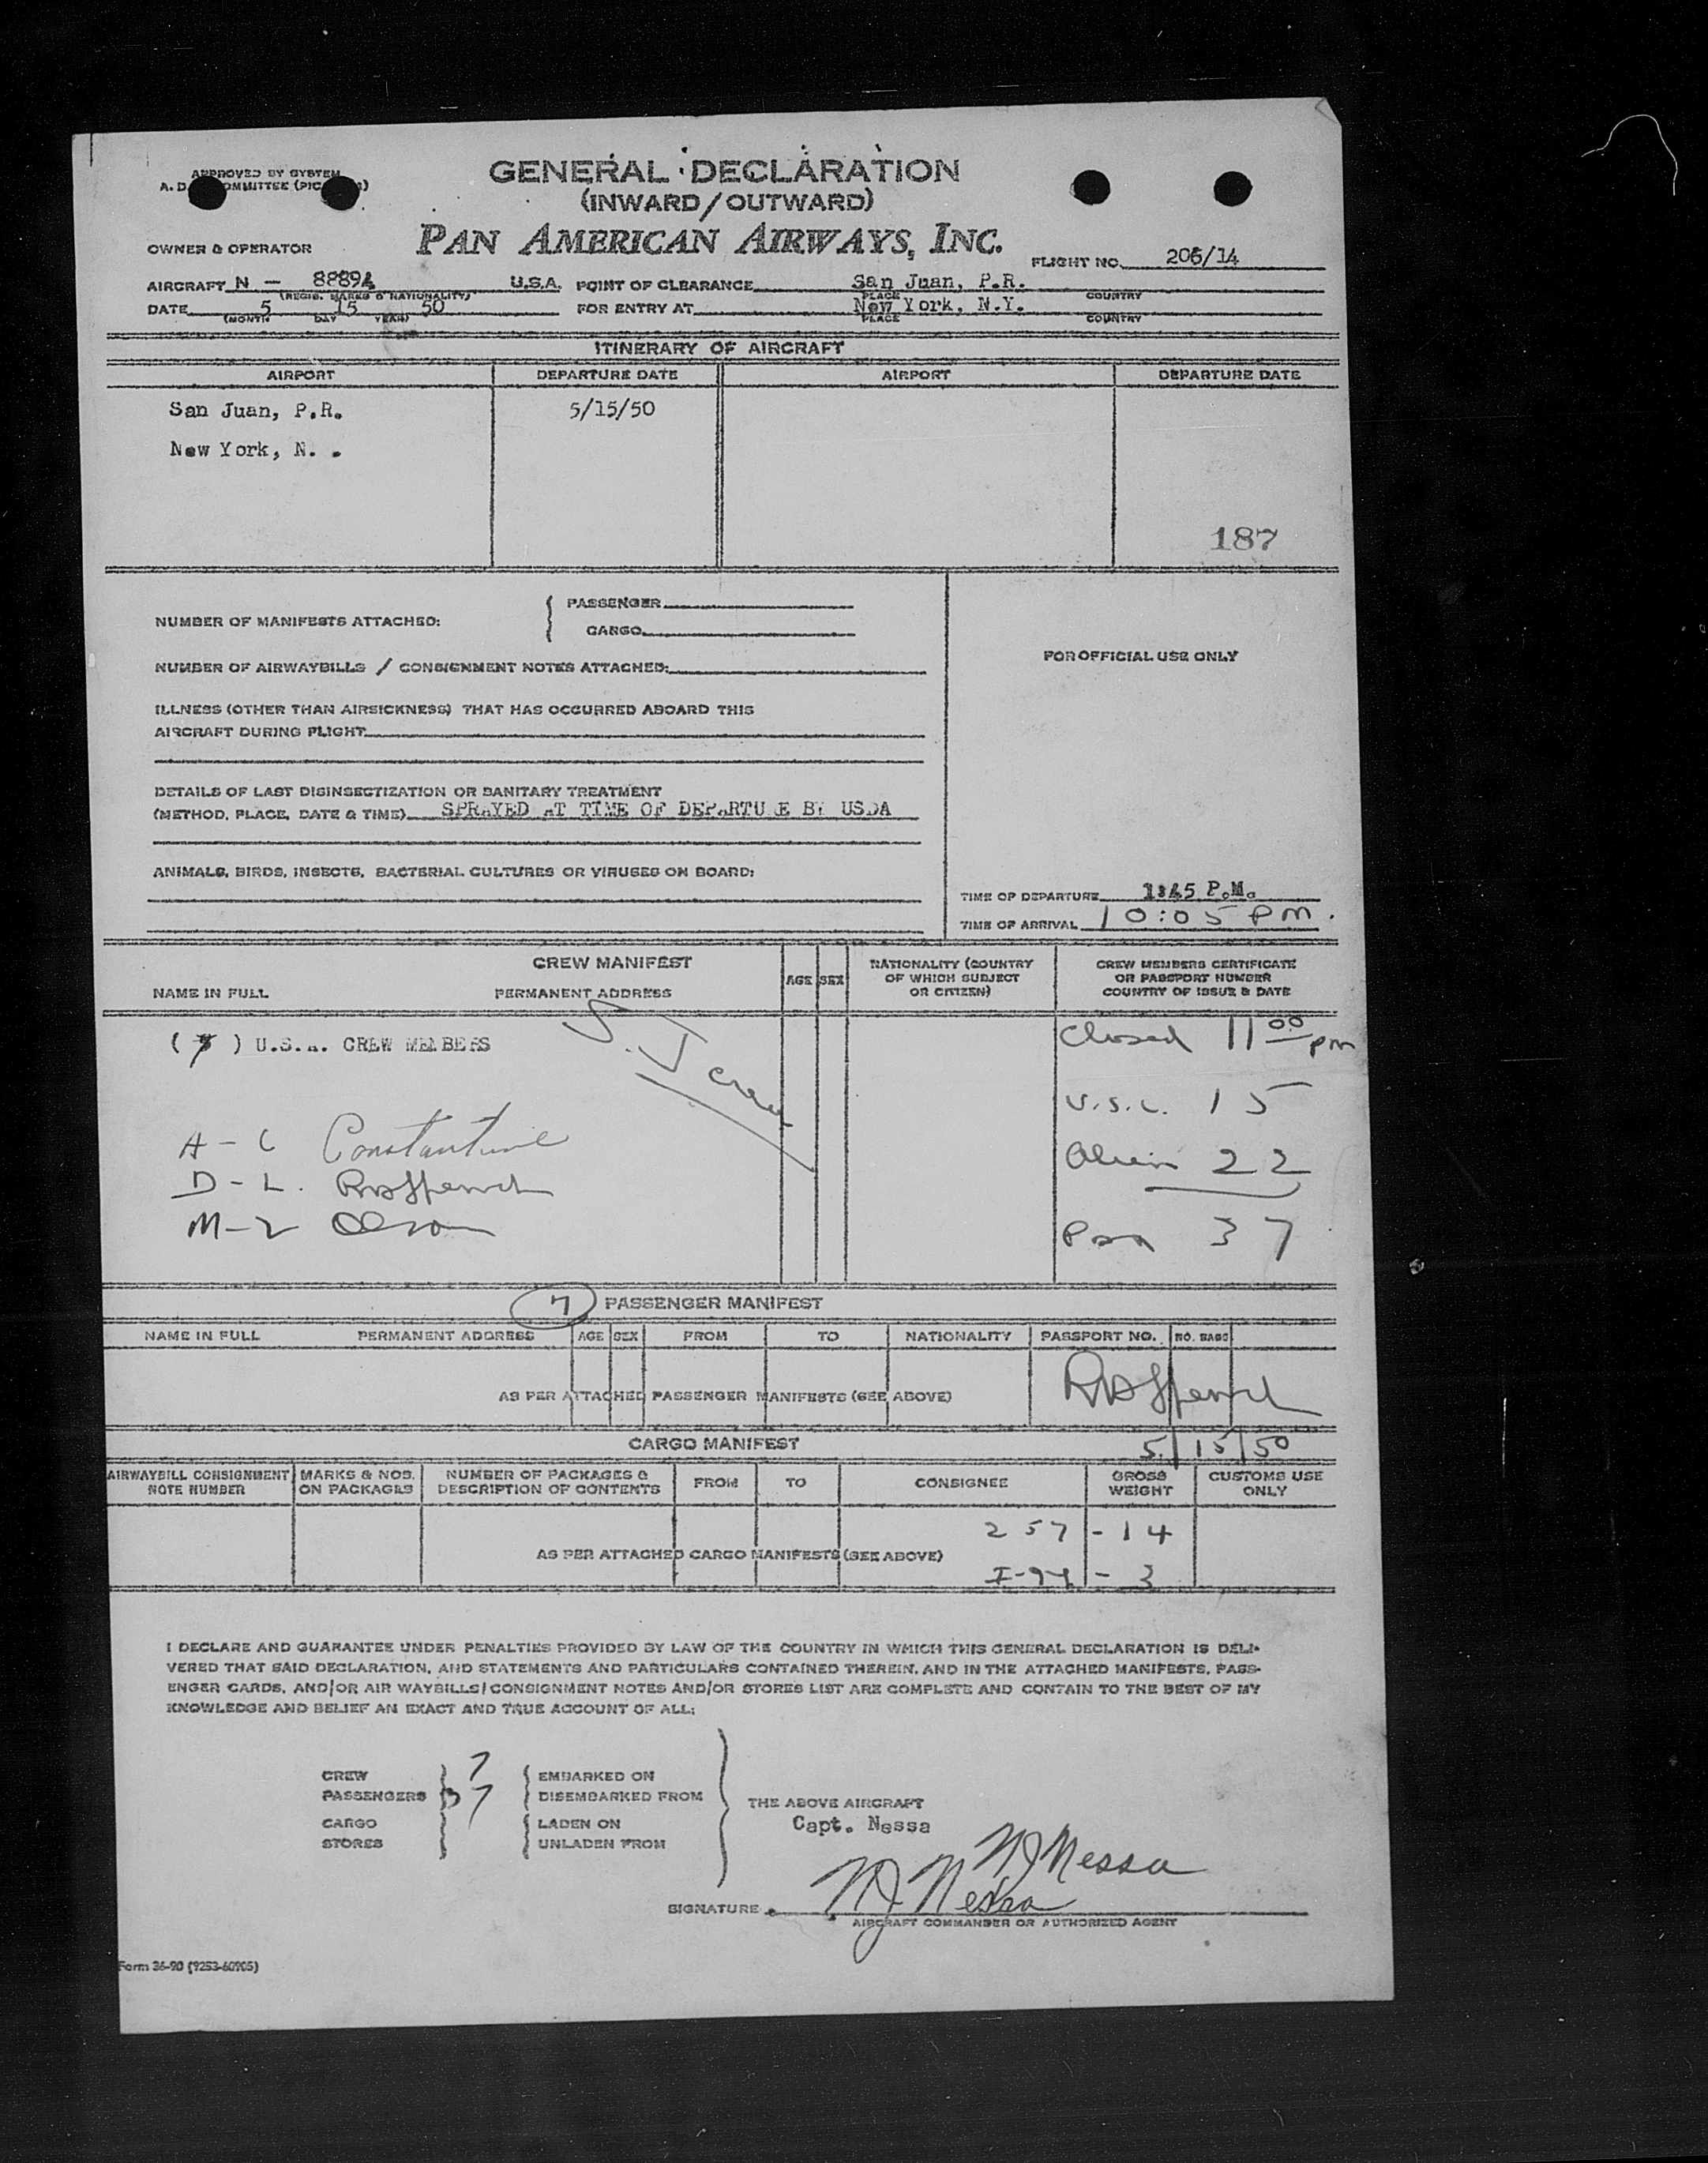 APPROVED BY SYSTEM
GENERAL DECLARATION
(INWARD/OUTWARD)
OWNER & OPERATOR PAN AMERICAN AIRWAYS, INC. FLIGHT NO. 206/14
AIRCRAFT N - 88894 U.S.A. POINT OF CLEARANCE San Juan, P.R.
(REGIS. MARKS & NATIONALITY) PLACE COUNTRY
DATE 5 15 50 FOR ENTRY AT New York, N.Y.
(MONTH DAY YEAR) PLACE COUNTRY
ITINERARY OF AIRCRAFT
AIRPORT DEPARTURE DATE AIRPORT DEPARTURE DATE
San Juan, P.R. 5/15/50
New York, N. .
187
NUMBER OF MANIFESTS ATTACHED: { PASSENGER
CARGO
NUMBER OF AIRWAYBILLS / CONSIGNMENT NOTES ATTACHED:
FOR OFFICIAL USE ONLY
ILLNESS (OTHER THAN AIRSICKNESS) THAT HAS OCCURRED ABOARD THIS
AIRCRAFT DURING FLIGHT
DETAILS OF LAST DISINSECTIZATION OR SANITARY TREATMENT
(METHOD, PLACE, DATE & TIME) SPRAYED AT TIME OF DEPARTURE BY USDA
ANIMALS, BIRDS, INSECTS, BACTERIAL CULTURES OR VIRUSES ON BOARD:
TIME OF DEPARTURE 1:45 P.M.
TIME OF ARRIVAL 10:05 PM.
CREW MANIFEST
NAME IN FULL PERMANENT ADDRESS AGE SEX NATIONALITY (COUNTRY OF WHICH SUBJECT OR CITIZEN) CREW MEMBERS CERTIFICATE OR PASSPORT NUMBER COUNTRY OF ISSUE & DATE
(7) U.S.A. CREW MEMBERS
S.J crew
Closed 11 00 pm
U.S.C. 15
A - C Constantine
Alien 22
D - L.
M - Z Olson
Pax 37
7 PASSENGER MANIFEST
NAME IN FULL PERMANENT ADDRESS AGE SEX FROM TO NATIONALITY PASSPORT NO. NO. BAGS
AS PER ATTACHED PASSENGER MANIFESTS (SEE ABOVE)
CARGO MANIFEST 5/15/50
AIRWAYBILL CONSIGNMENT NOTE NUMBER MARKS & NOS. ON PACKAGES NUMBER OF PACKAGES & DESCRIPTION OF CONTENTS FROM TO CONSIGNEE GROSS WEIGHT CUSTOMS USE ONLY
257 - 14
AS PER ATTACHED CARGO MANIFESTS (SEE ABOVE)
I-94 - 3
I DECLARE AND GUARANTEE UNDER PENALTIES PROVIDED BY LAW OF THE COUNTRY IN WHICH THIS GENERAL DECLARATION IS DELI-
VERED THAT SAID DECLARATION, AND STATEMENTS AND PARTICULARS CONTAINED THEREIN, AND IN THE ATTACHED MANIFESTS, PASS-
ENGER CARDS, AND/OR AIR WAYBILLS/CONSIGNMENT NOTES AND/OR STORES LIST ARE COMPLETE AND CONTAIN TO THE BEST OF MY
KNOWLEDGE AND BELIEF AN EXACT AND TRUE ACCOUNT OF ALL:
CREW 7 EMBARKED ON
PASSENGERS 37 DISEMBARKED FROM
THE ABOVE AIRCRAFT
CARGO LADEN ON
Capt. Nessa
STORES UNLADEN FROM
NJ Nessa
SIGNATURE NJ Nessa
AIRCRAFT COMMANDER OR AUTHORIZED AGENT
Form 36-90 (9253-60905)